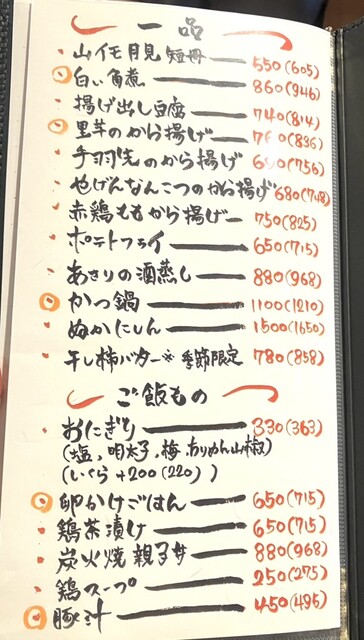 一品
山イモ月見 短冊 550(605)
白い角煮 860(946)
揚げ出し豆腐 740(814)
里芋のから揚げ 760(836)
手羽先のから揚げ (756)
やげんなんこつのから揚げ 680(748)
赤鶏ももから揚げ 750(825)
ポテトフライ 650(715)
あさりの酒蒸し 880(968)
かつ鍋 1100(1210)
ぬかにしん 1500(1650)
干し柿バター※季節限定 780(858)
ご飯もの
おにぎり 330(363)
(塩、明太子、梅、ちりめん山椒)
(いくら+200(220))
卵かけごはん 650(715)
鶏茶漬け 650(715)
炭火焼 親子丼 880(968)
鶏スープ 250(275)
豚汁 450(495)